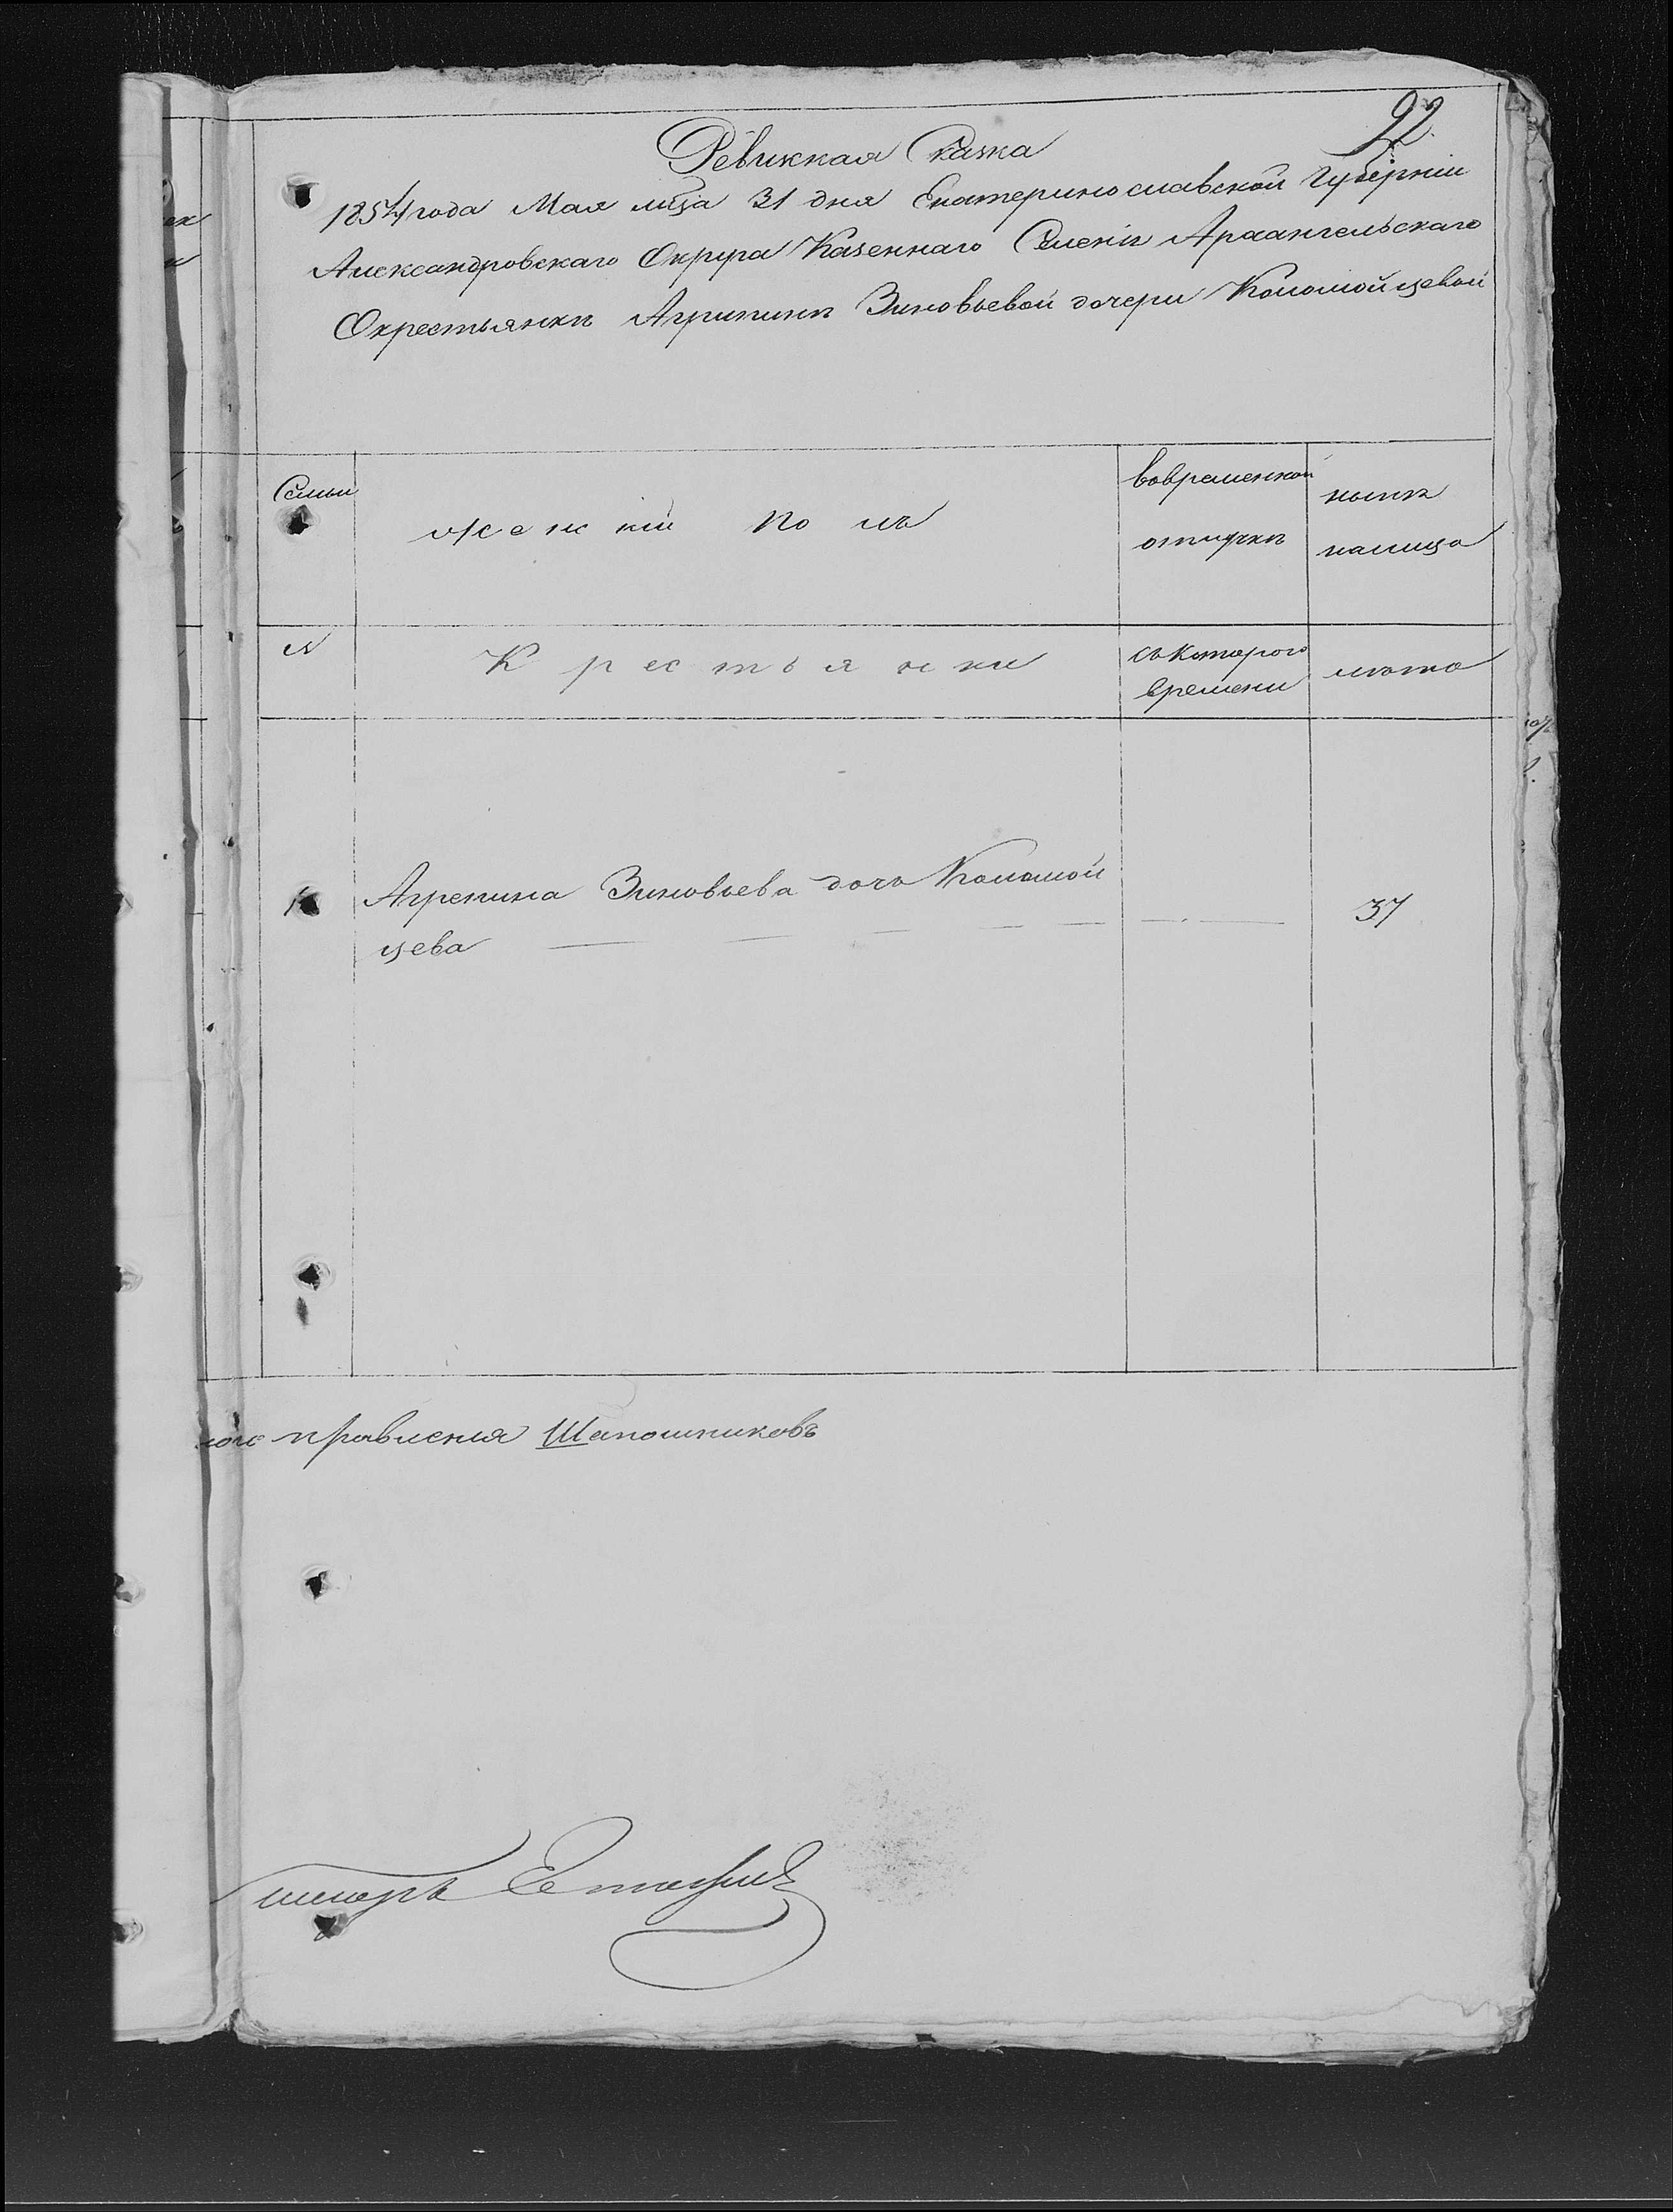 92
Ревижкая Скаска
1854 года Мая мѣца 31 дня Екатеринославской Губерніи
Александровскаго Округа Казеннаго Селенія Архангельскаго
Окрестьянкѣ Агрипинѣ Зиновьевой дочери Коломойцевой
Семьи женкій полъ вовременной нынѣ
отлучкѣ налицо
№ Крестьянки съкоторого лѣта
времени
1 Агрепина Зиновьева дочь Коломой
цева 37
правленія Шапошниковъ